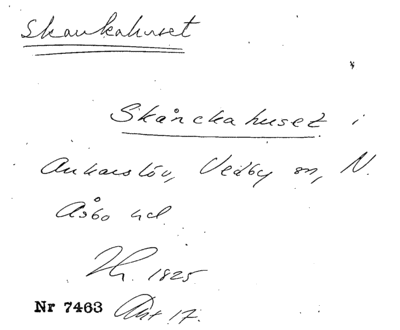 Skankahuset
Skånckahuset i
Ankarslöv, Vedby sn, N.
Åsbo hd
Hh. 1825
Nr 7463 Akt 17.